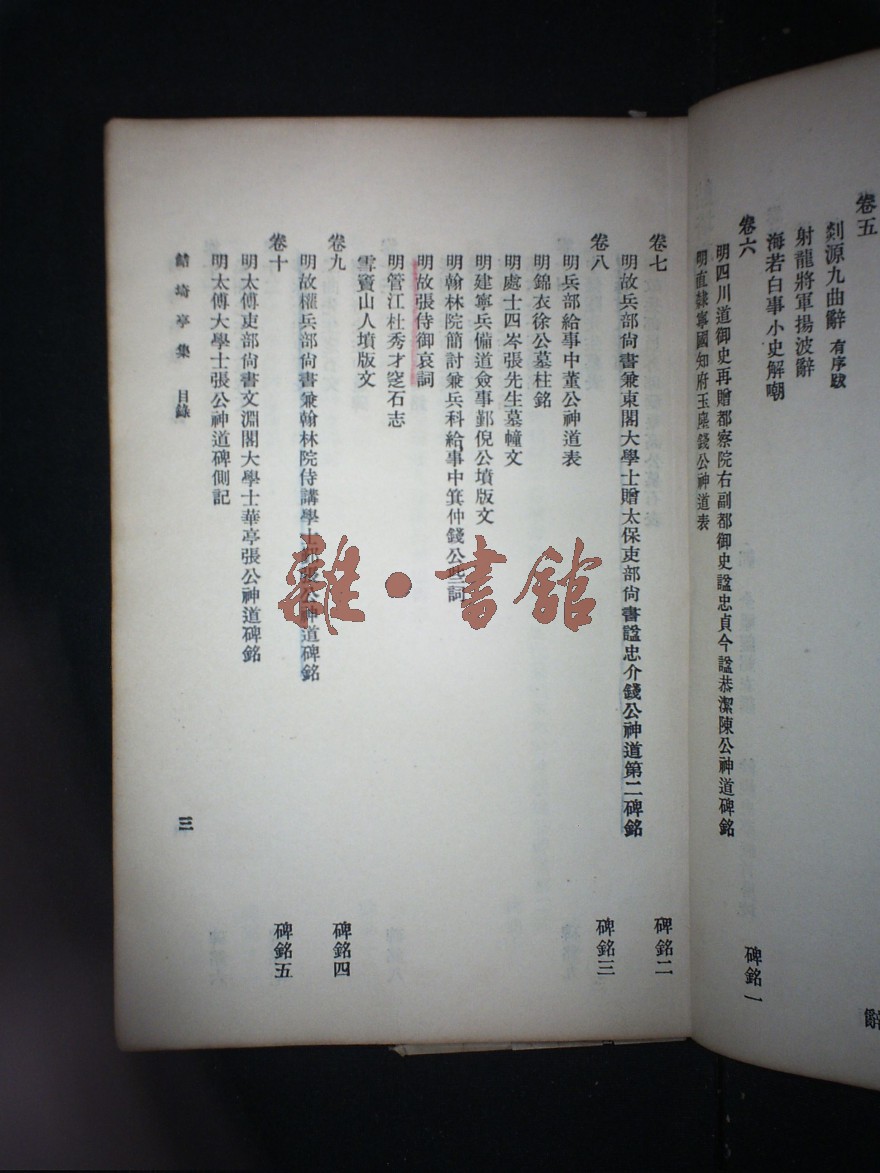 卷五
辭
剡源九曲辭 有序跋
射龍將軍揚波辭
海若白事小史解嘲
卷六
碑銘一
明四川道御史再贈都察院右副都御史諡忠貞今諡恭潔陳公神道碑銘
明直隸寧國知府玉塵錢公神道表
卷七
碑銘二
明故兵部尚書兼東閣大學士贈太保吏部尚書諡忠介錢公神道第二碑銘
卷八
碑銘三
明兵部給事中董公神道表
明錦衣徐公墓柱銘
明處士四岑張先生墓幢文
明建寧兵備道僉事鄞倪公墳版文
明翰林院簡討兼兵科給事中箕仲錢公些詞
明故張侍御哀詞
明管江杜秀才窆石志
雪竇山人墳版文
卷九
碑銘四
明故權兵部尚書兼翰林院侍講學士公神道碑銘
卷十
碑銘五
明太傅吏部尚書文淵閣大學士華亭張公神道碑銘
明太傅大學士張公神道碑側記
鮚埼亭集 目錄
三
雜·書館